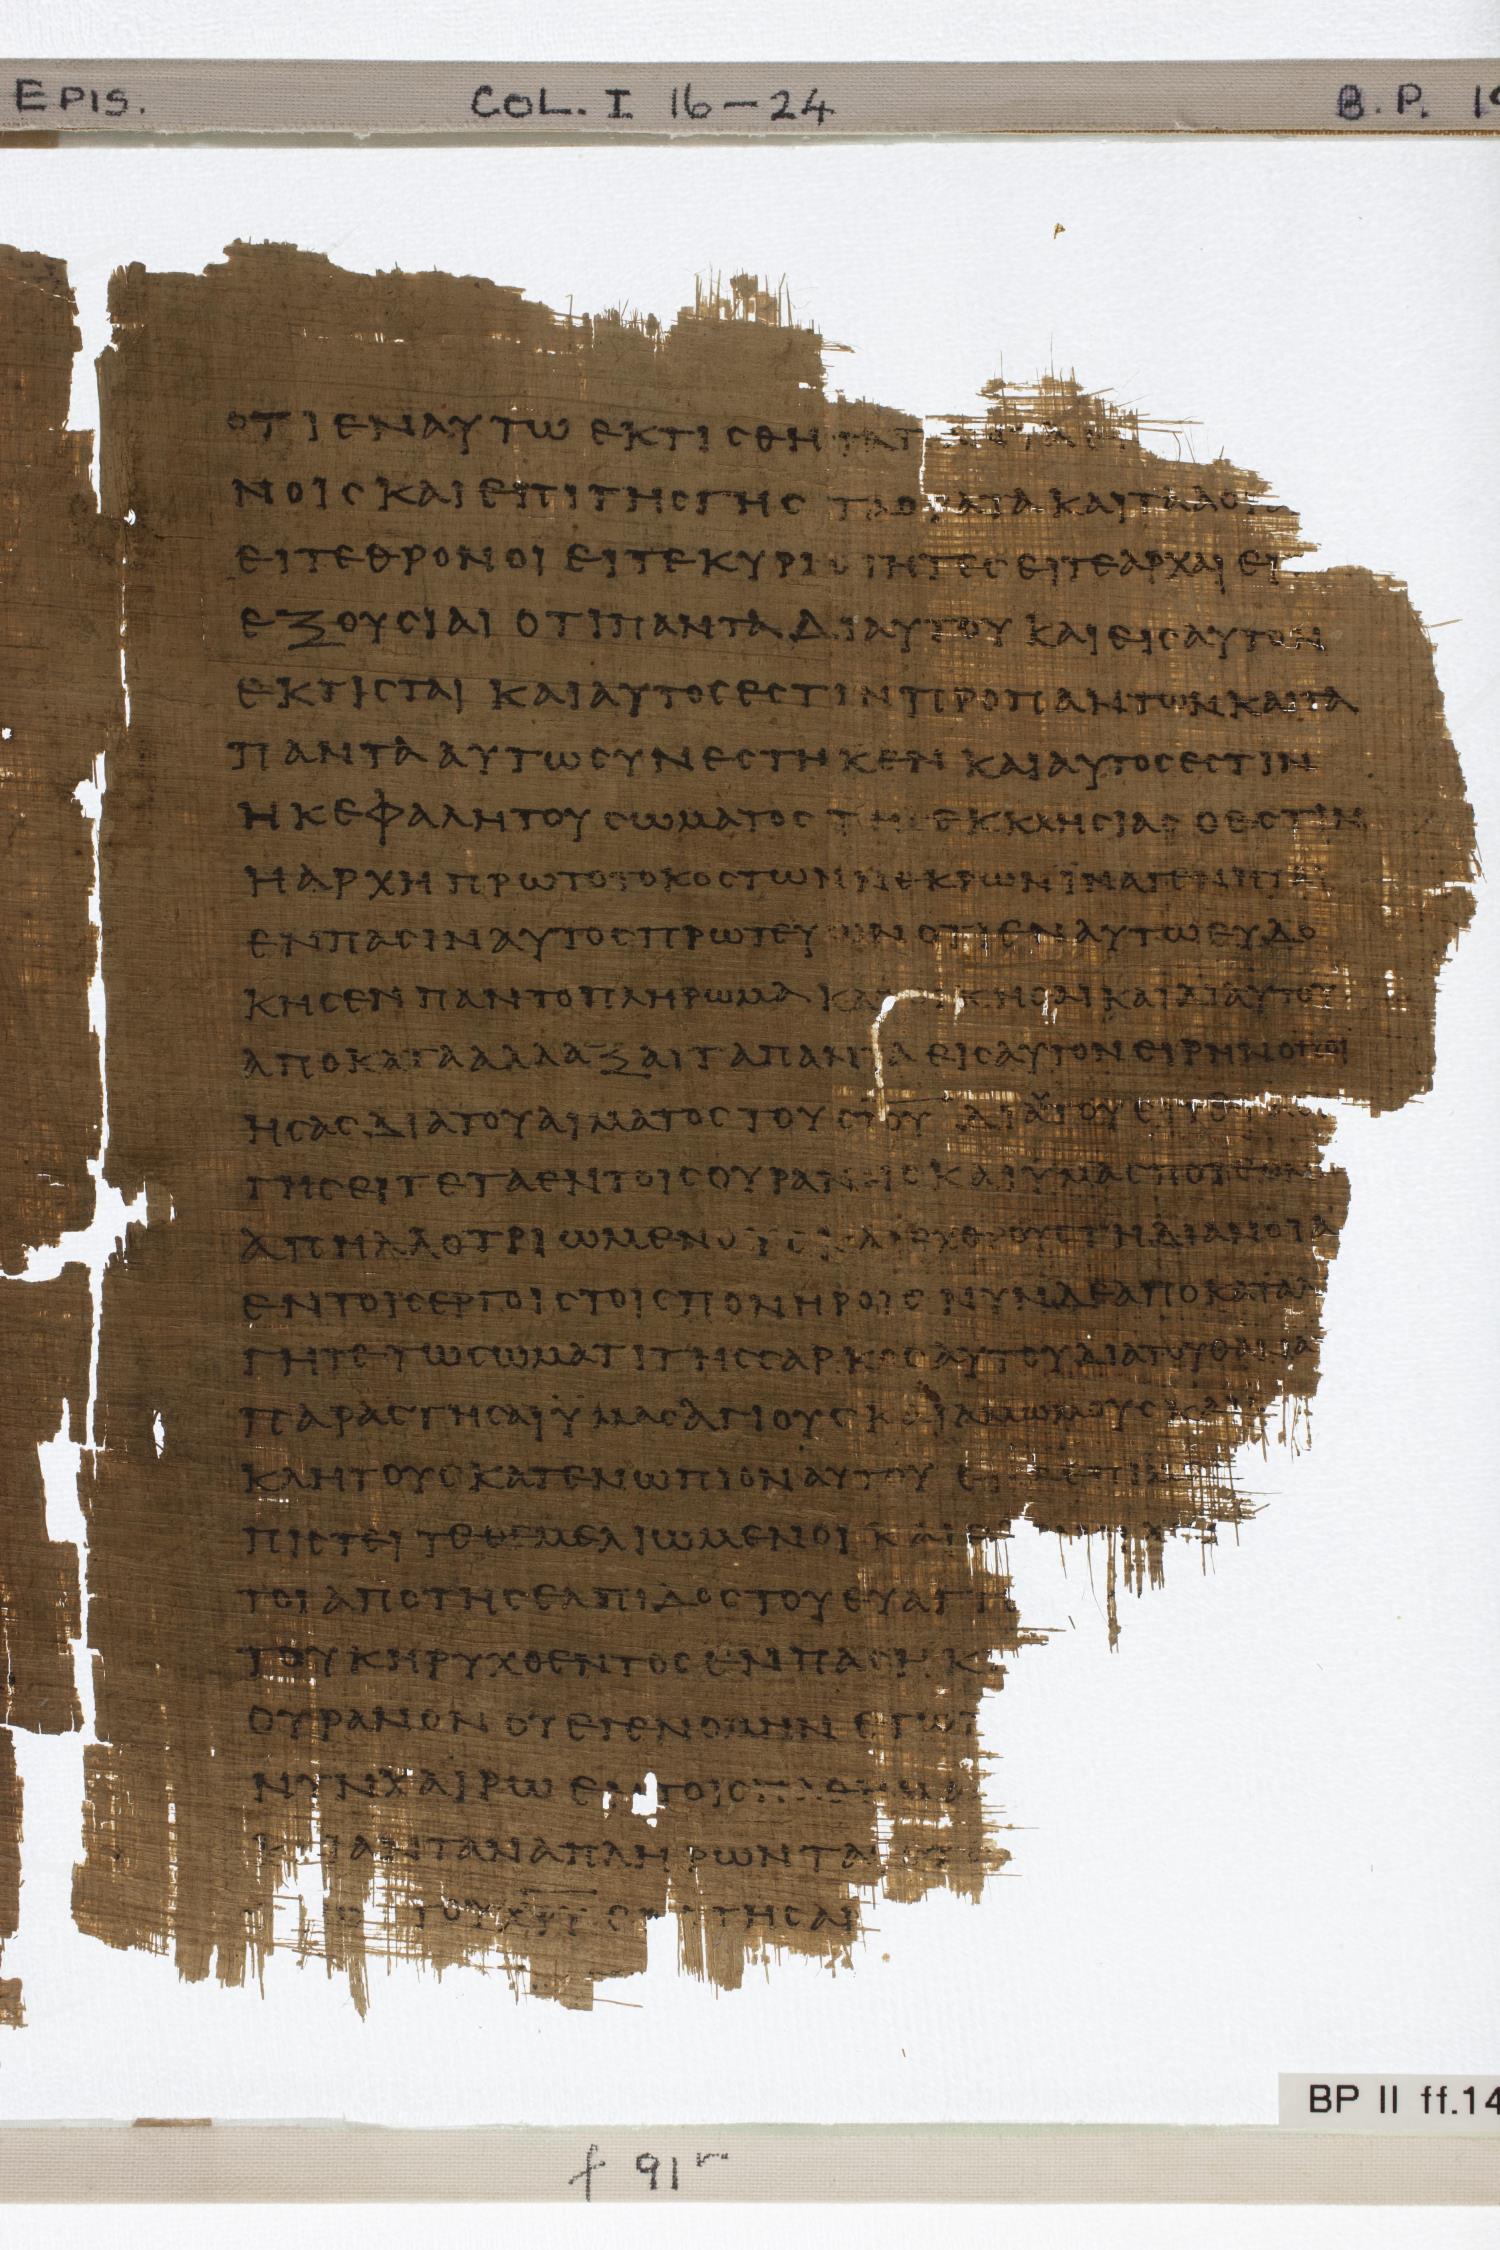 EPIS. COL. I 16-24 B.P. 19
ΟΤΙ ΕΝ ΑΥΤΩ ΕΚΤΙCΘΗ
ΝΟΙC ΚΑΙ ΕΠΙ ΤΗC ΓΗC ΤΑ ΟΡΑΤΑ ΚΑΙ ΤΑ
ΕΙΤΕ ΘΡΟΝΟΙ ΕΙΤΕ ΚΥΡΙΟΤΗΤΕC ΕΙΤΕ ΑΡΧΑΙ ΕΙ
ΕΞΟΥCΙΑΙ ΟΤΙ ΠΑΝΤΑ ΔΙ ΑΥΤΟΥ ΚΑΙ ΕΙC ΑΥΤΟΝ
ΕΚΤΙCΤΑΙ ΚΑΙ ΑΥΤΟC ΕCΤΙΝ ΠΡΟ ΠΑΝΤΩΝ ΚΑΙ ΤΑ
ΠΑΝΤΑ ΑΥΤΩ CΥΝΕCΤΗΚΕΝ ΚΑΙ ΑΥΤΟC ΕCΤΙΝ
Η ΚΕΦΑΛΗ ΤΟΥ CΩΜΑΤΟC ΤΗC ΕΚΚΛΗCΙΑC Ο ΕCΤΙΝ
Η ΑΡΧΗ ΠΡΩΤΟΤΟΚΟC ΤΩΝ ΝΕΚΡΩΝ ΙΝΑ ΓΕΝΗΤΑΙ
ΕΝ ΠΑCΙΝ ΑΥΤΟC ΠΡΩΤΕΥΩΝ ΟΤΙ ΕΝ ΑΥΤΩ ΕΥΔΟ
ΚΗCΕΝ ΠΑΝ ΤΟ ΠΛΗΡΩΜΑ ΚΑΤΟΙΚΗCΑΙ ΚΑΙ ΔΙ ΑΥΤΟΥ
ΑΠΟΚΑΤΑΑΛΛΑΞΑΙ ΤΑ ΠΑΝΤΑ ΕΙC ΑΥΤΟΝ ΕΙΡΗΝΟΠΟΙ
ΗCΑC ΔΙΑ ΤΟΥ ΑΙΜΑΤΟC ΤΟΥ CΤΟΥ ΔΙ ΑΥΤΟΥ ΕΙΤΕ
ΓΗC ΕΙΤΕ ΤΑ ΕΝ ΤΟΙC ΟΥΡΑΝΟΙC ΚΑΙ ΫΜΑC ΠΟΤΕ ΟΝ
ΑΠΗΛΛΟΤΡΙΩΜΕΝΟΥC ΚΑΙ ΕΧΘΡΟΥC ΤΗ ΔΙΑΝΟΙΑ
ΕΝ ΤΟΙC ΕΡΓΟΙC ΤΟΙC ΠΟΝΗΡΟΙC ΝΥΝ ΔΕ ΑΠΟΚΑΤΑΛ
ΓΗΤΕ ΤΩ CΩΜΑΤΙ ΤΗC CΑΡΚΟC ΑΥΤΟΥ ΔΙΑ ΤΟΥ ΘΑΝΑ
ΠΑΡΑCΤΗCΑΙ ΫΜΑC ΑΓΙΟΥC ΚΑΙ ΑΜΩΜΟΥC ΚΑΙ
ΚΛΗΤΟΥC ΚΑΤΕΝΩΠΙΟΝ ΑΥΤΟΥ
ΠΙCΤΕΙ ΤΕΘΕΜΕΛΙΩΜΕΝΟΙ ΚΑΙ
ΤΟΙ ΑΠΟ ΤΗC ΕΛΠΙΔΟC ΤΟΥ ΕΥΑΓΓ
ΤΟΥ ΚΗΡΥΧΘΕΝΤΟC ΕΝ ΠΑCΗ Κ
ΟΥΡΑΝΟΝ ΟΥ ΕΓΕΝΟΜΗΝ ΕΓΩ Π
ΝΥΝ ΧΑΙΡΩ ΕΝ ΤΟΙC
ΚΑΙ ΑΝΤΑΝΑΠΛΗΡΩΝ ΤΑ
ΤΟΥ ΧΡΥ ΤΗ CΑΡ
BP II ff.14
f 91r